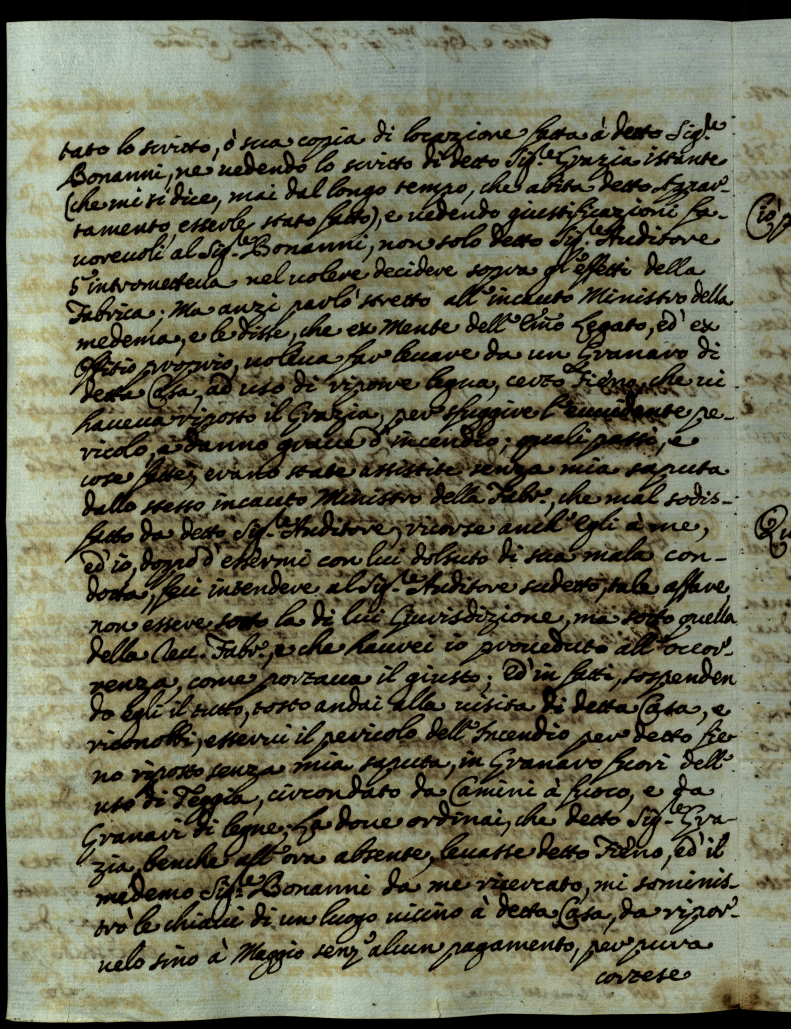 tato lo scritto, ò sua copia di locazione fatta à detto Sig.re
Bonanni, ne uedendo lo scritto di detto Sig.re Grazia istante
(che mi si dice, mai dal longo tempo, che abita detto Apar-
tamento, esserle stato fatto), e uedendo giustificazioni fa-
uoreuoli al Sig.re Bonanni, non solo detto Sig.re Auditore
s'intrometteua nel uolere decidere sopra gl'effetti della
Fabrica; Ma anzi parlò stretto all'incauto Ministro della
medema, e le disse, che ex Mente dell'Emo Legato, ed ex
Offitio proprio, uoleua far leuare da un Granaro di
detta Casa, ad uso di riporre legna, certo Fieno, che ui
haueua riposto il Grazia, per sfuggire l'euuidente pe-
ricolo, e danno graue d'incendio; quali passi, e
cose fatte, erano state assistite senza mia saputa
dallo stesso incauto Ministro della Fabr.a, che mal sodis-
fatto da detto Sig.re Auditore, ricorse anch'egli à me,
ed io, doppo d'essermi con lui dolsuto di sua mala con-
dotta, feci intendere al Sig.re Auditore sudetto, tale affare
non essere sotto la di lui Giurisdizione, ma sotto quella
della Reu. Fabr.a, e che haurei io proceduto all'occor-
renza, come portaua il giusto; Ed in fatti, sospenden
do egli il tutto, tosto andai alla uisita di detta Casa, e
riconobbi, esserui il pericolo dell'Incendio per detto Fie
no riposto senza mia saputa, in Granaro fuori dell'
uso di Teggia, circondato da Camini à fuoco, e da
Granari di legne; La doue ordinai, che detto Sig.re Gra-
zia, benche all'ora absente, leuasse detto Fieno, ed il
medemo Sig.re Bonanni da me ricercato, mi sominis-
trò le chiaui di un luogo uicino à detta Casa, da ripor-
uelo sino à Maggio senz'alcun pagamento, per pura
cortese